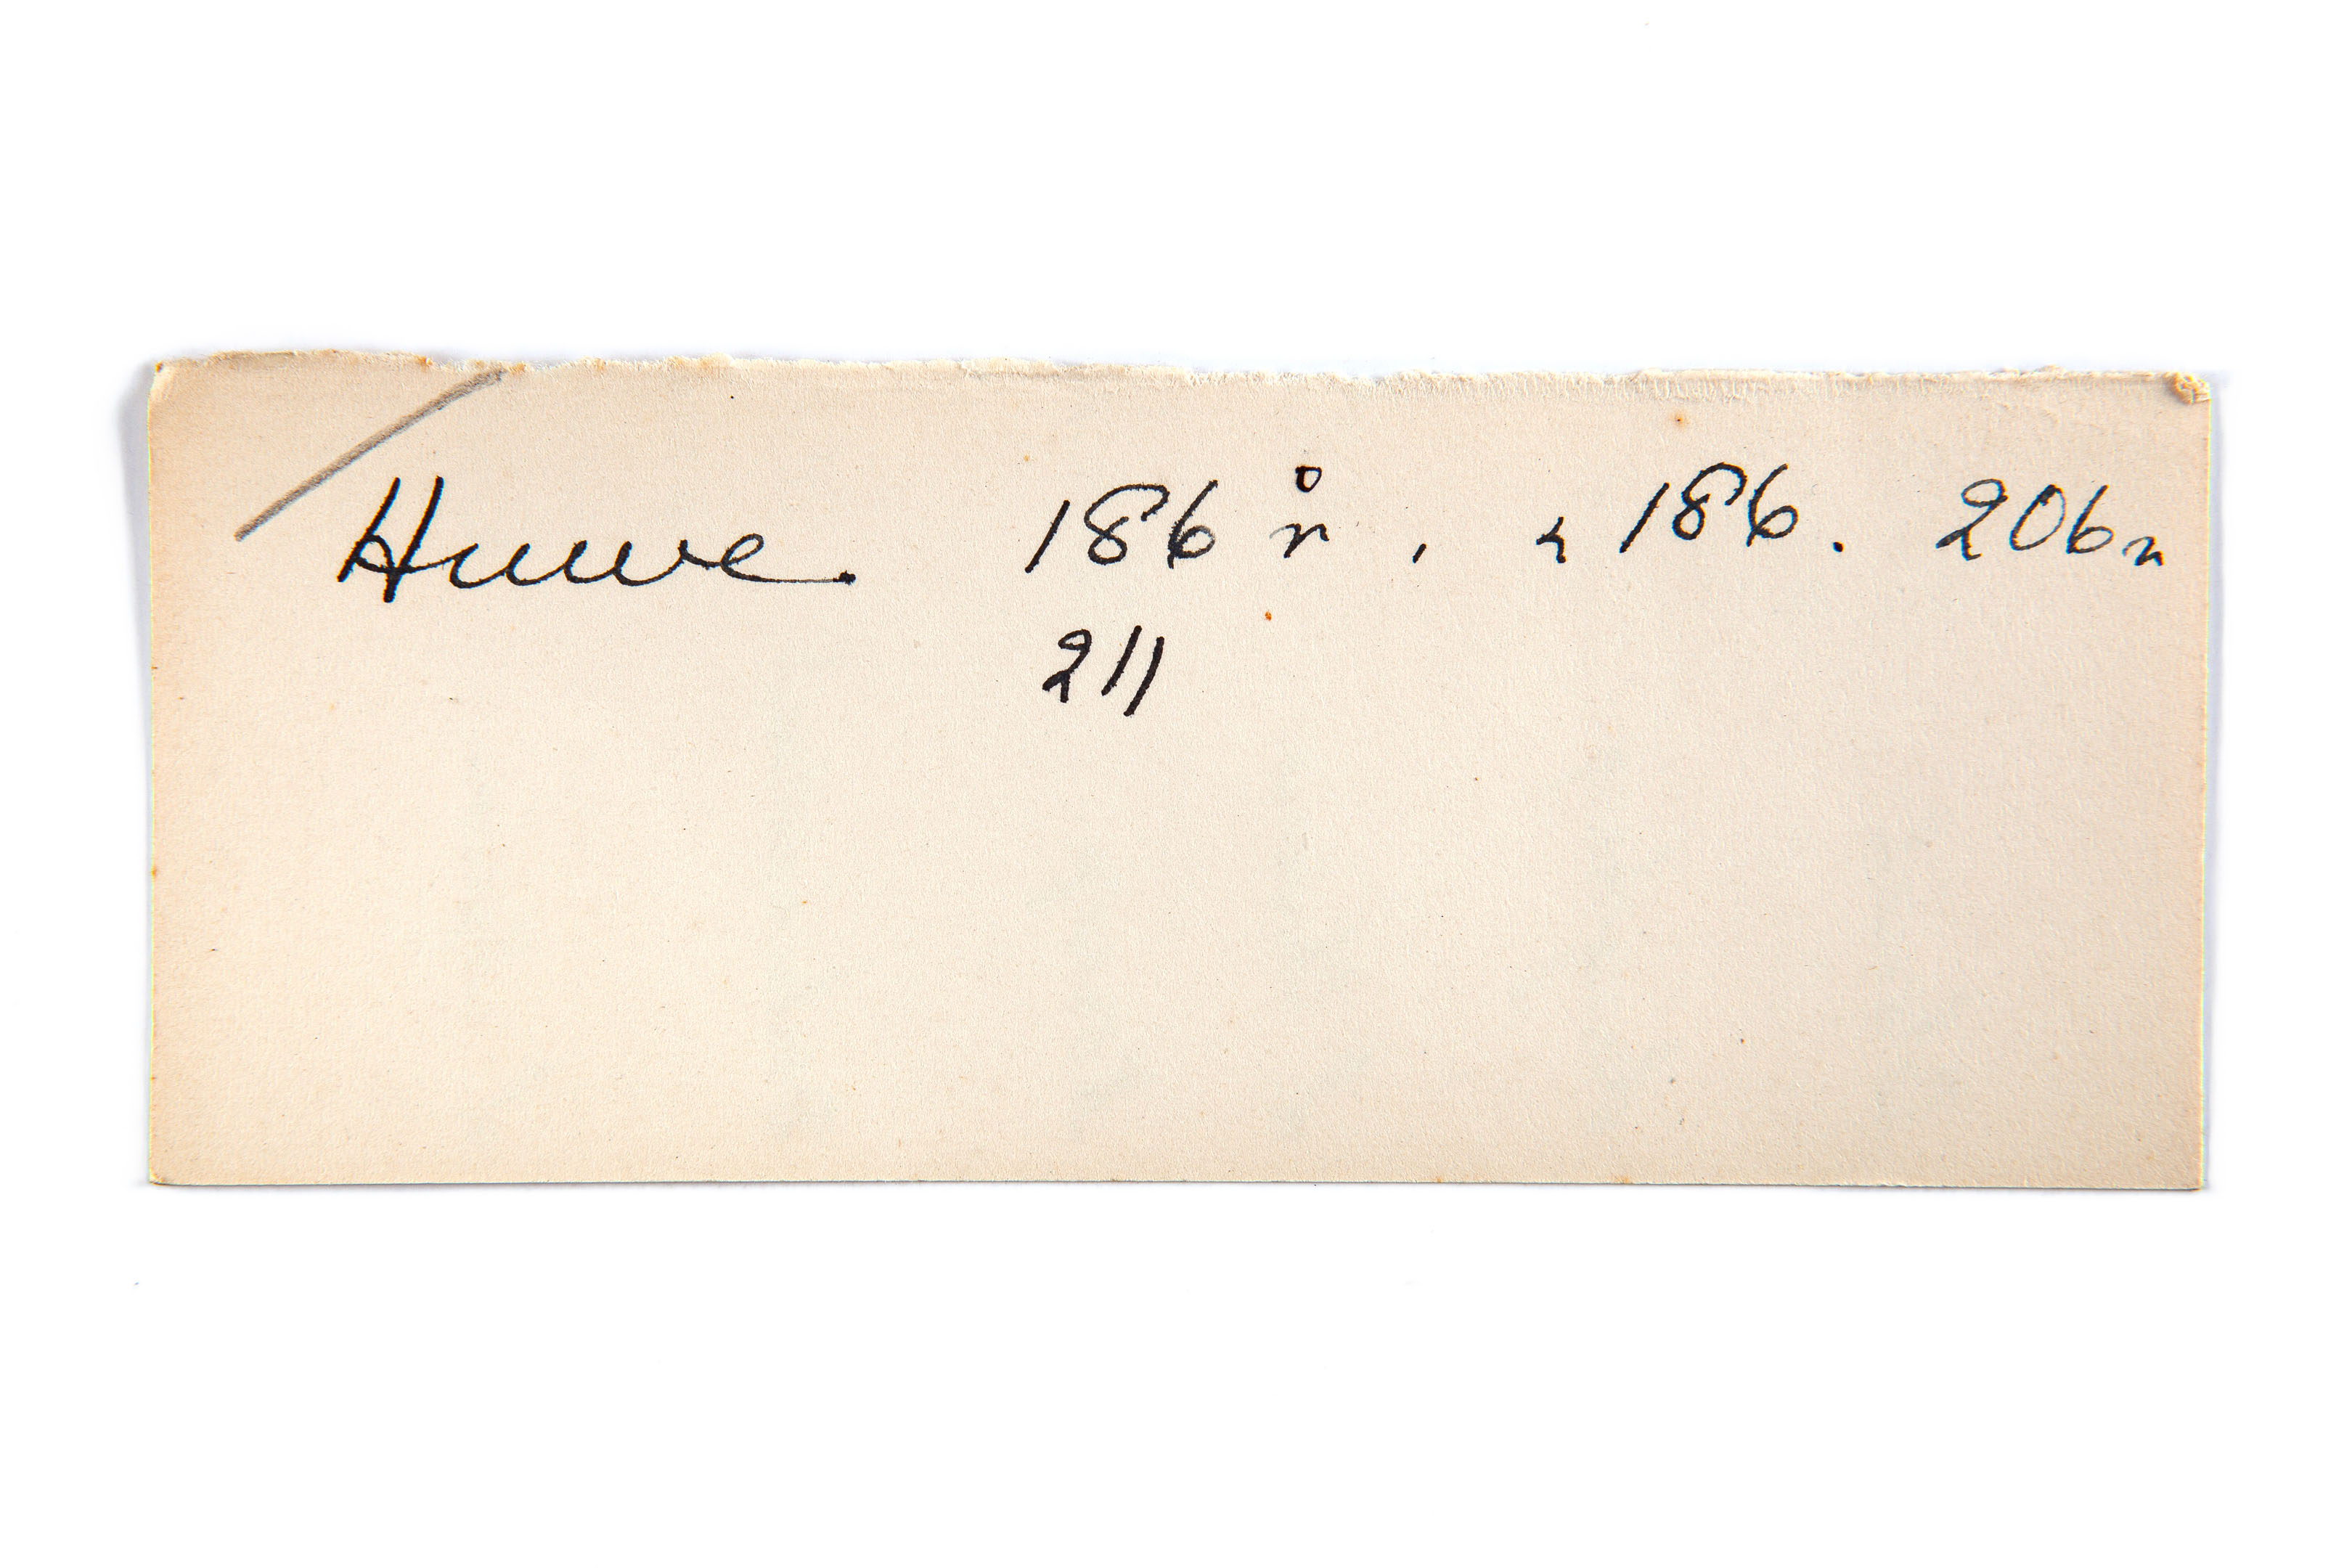 Huwe 186 n̊, 2 186. 206n
211